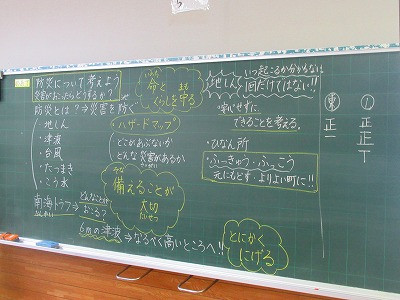 防災について考えよう
災害がおこったらどうするか?
防災とは?→災害を防ぐ
・地しん
・津波
・台風
・たつまき
・こう水
南海トラフ→
どんなことが
おこる?
6mの津波
→なるべく高いところへ!!
いのち
命と
まも
くらしを守る
ハザードマップ
どこがあぶないか
どんな災害があるか
そな
備えることが
大切
たいせつ
地しん
いつおこるか分からない
1回だけではない!!
できることを考える。
・ひなん所
・ふっきゅう・ふっこう
元にもどす・よりよい町に!!
とにかく
にげる
①
正
正
東
正
一